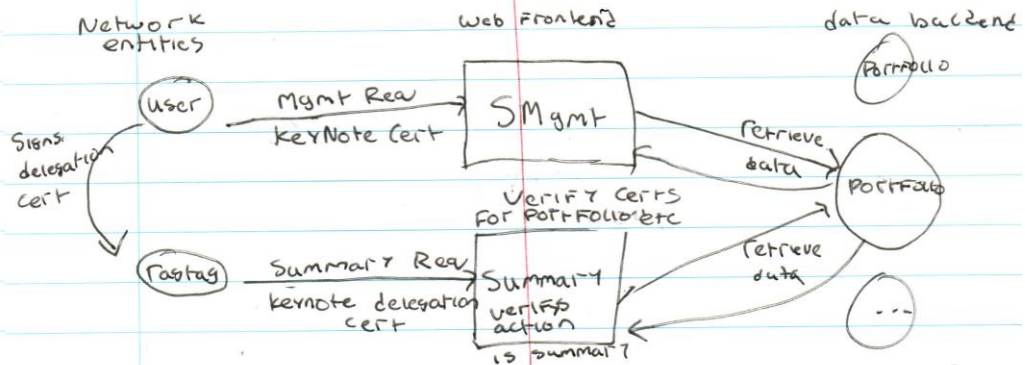 Network
entities
Web Frontend
data backend
Portfolio
user
Mgmt Req
KeyNote Cert
SMgmt
retrieve
data
Portfolio
Signs
delegation
cert
Verify Certs
For Portfolio etc
ragtag
Summary Req
keynote delegation
cert
Summary
verify
action
is summary
retrieve
data
...